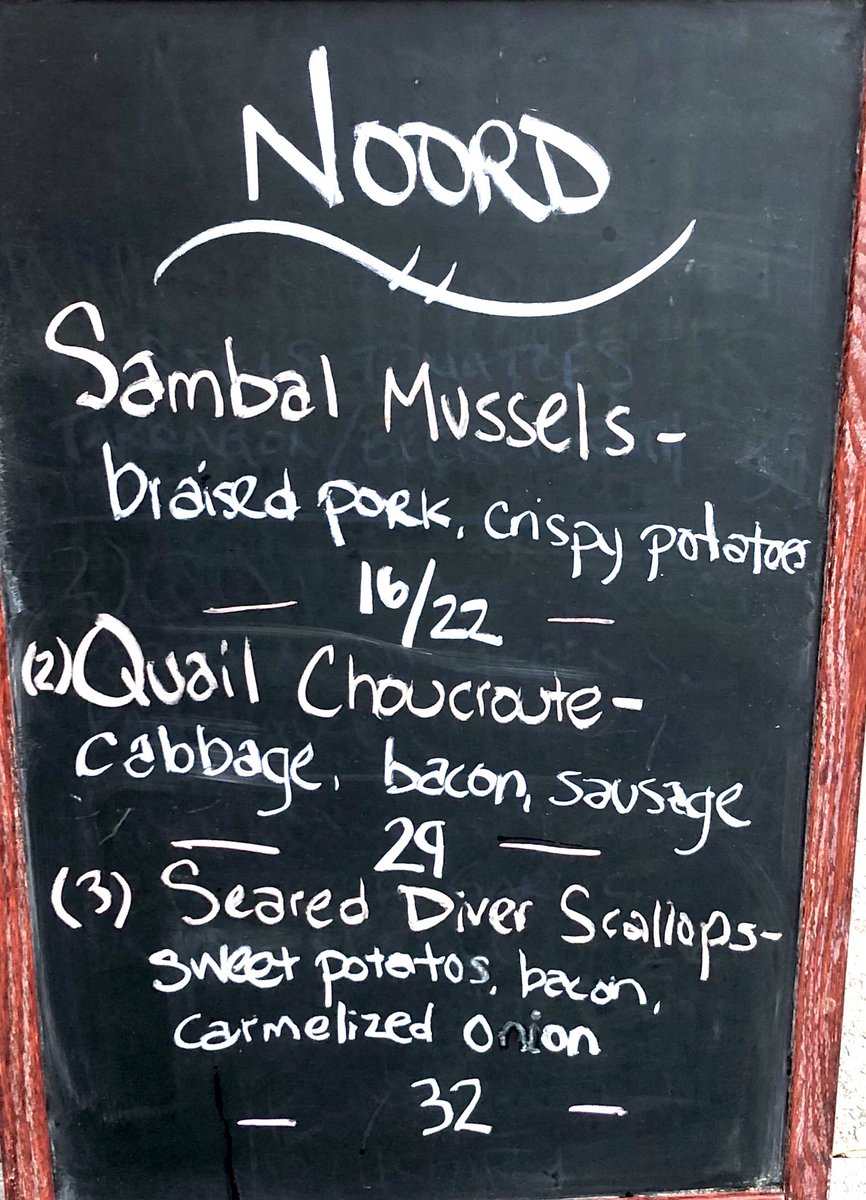 NOORD
Sambal Mussels -
braised pork, crispy potatoes
— 16/22 —
(2) Quail Choucroute -
cabbage, bacon, sausage
— 29 —
(3) Seared Diver Scallops -
sweet potatos, bacon,
carmelized onion
— 32 —